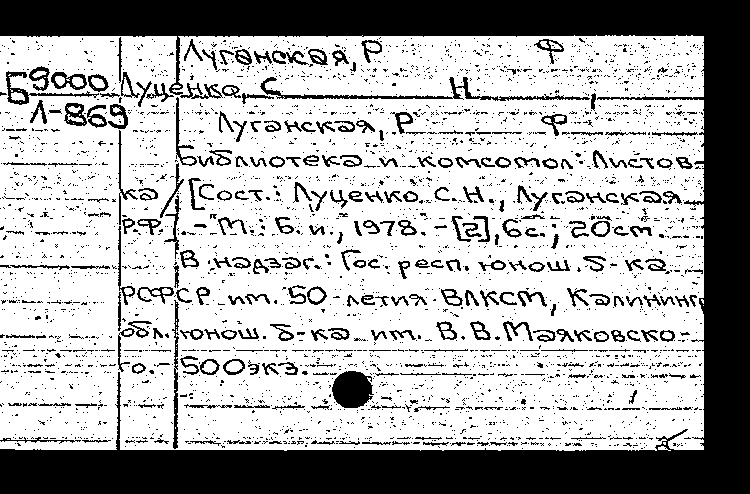 Луганская, Р Ф
Б9000 Луценко, С Н
Л-869
Луганская, Р Ф
Библиотека и комсомол: Листов-
ка / [Сост.: Луценко С.Н., Луганская
Р.Ф.]. - М.: Б. и., 1978. - [2], 6с.; 20см.
В надзаг.: Гос. респ. юнош. б-ка
РСФСР им. 50-летия ВЛКСМ, Калинингр
обл. юнош. б-ка им. В.В. Маяковско-
го. - 500экз.